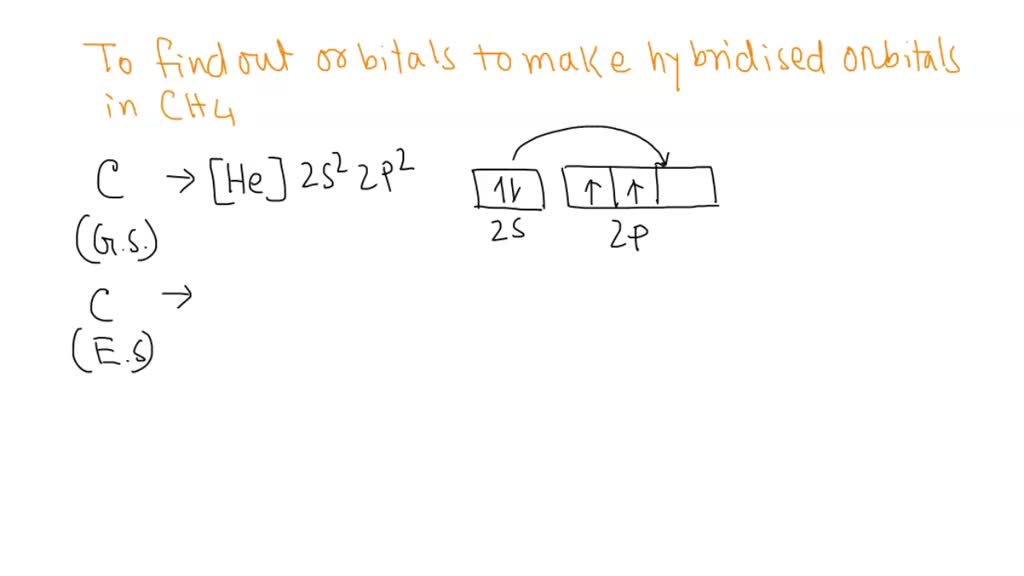 To find out orbitals to make hybridised orbitals
in CH4
C → [He] 2S² 2P² ↑↓ ↑ ↑
(G.S.) 2S 2P
C →
(E.S)